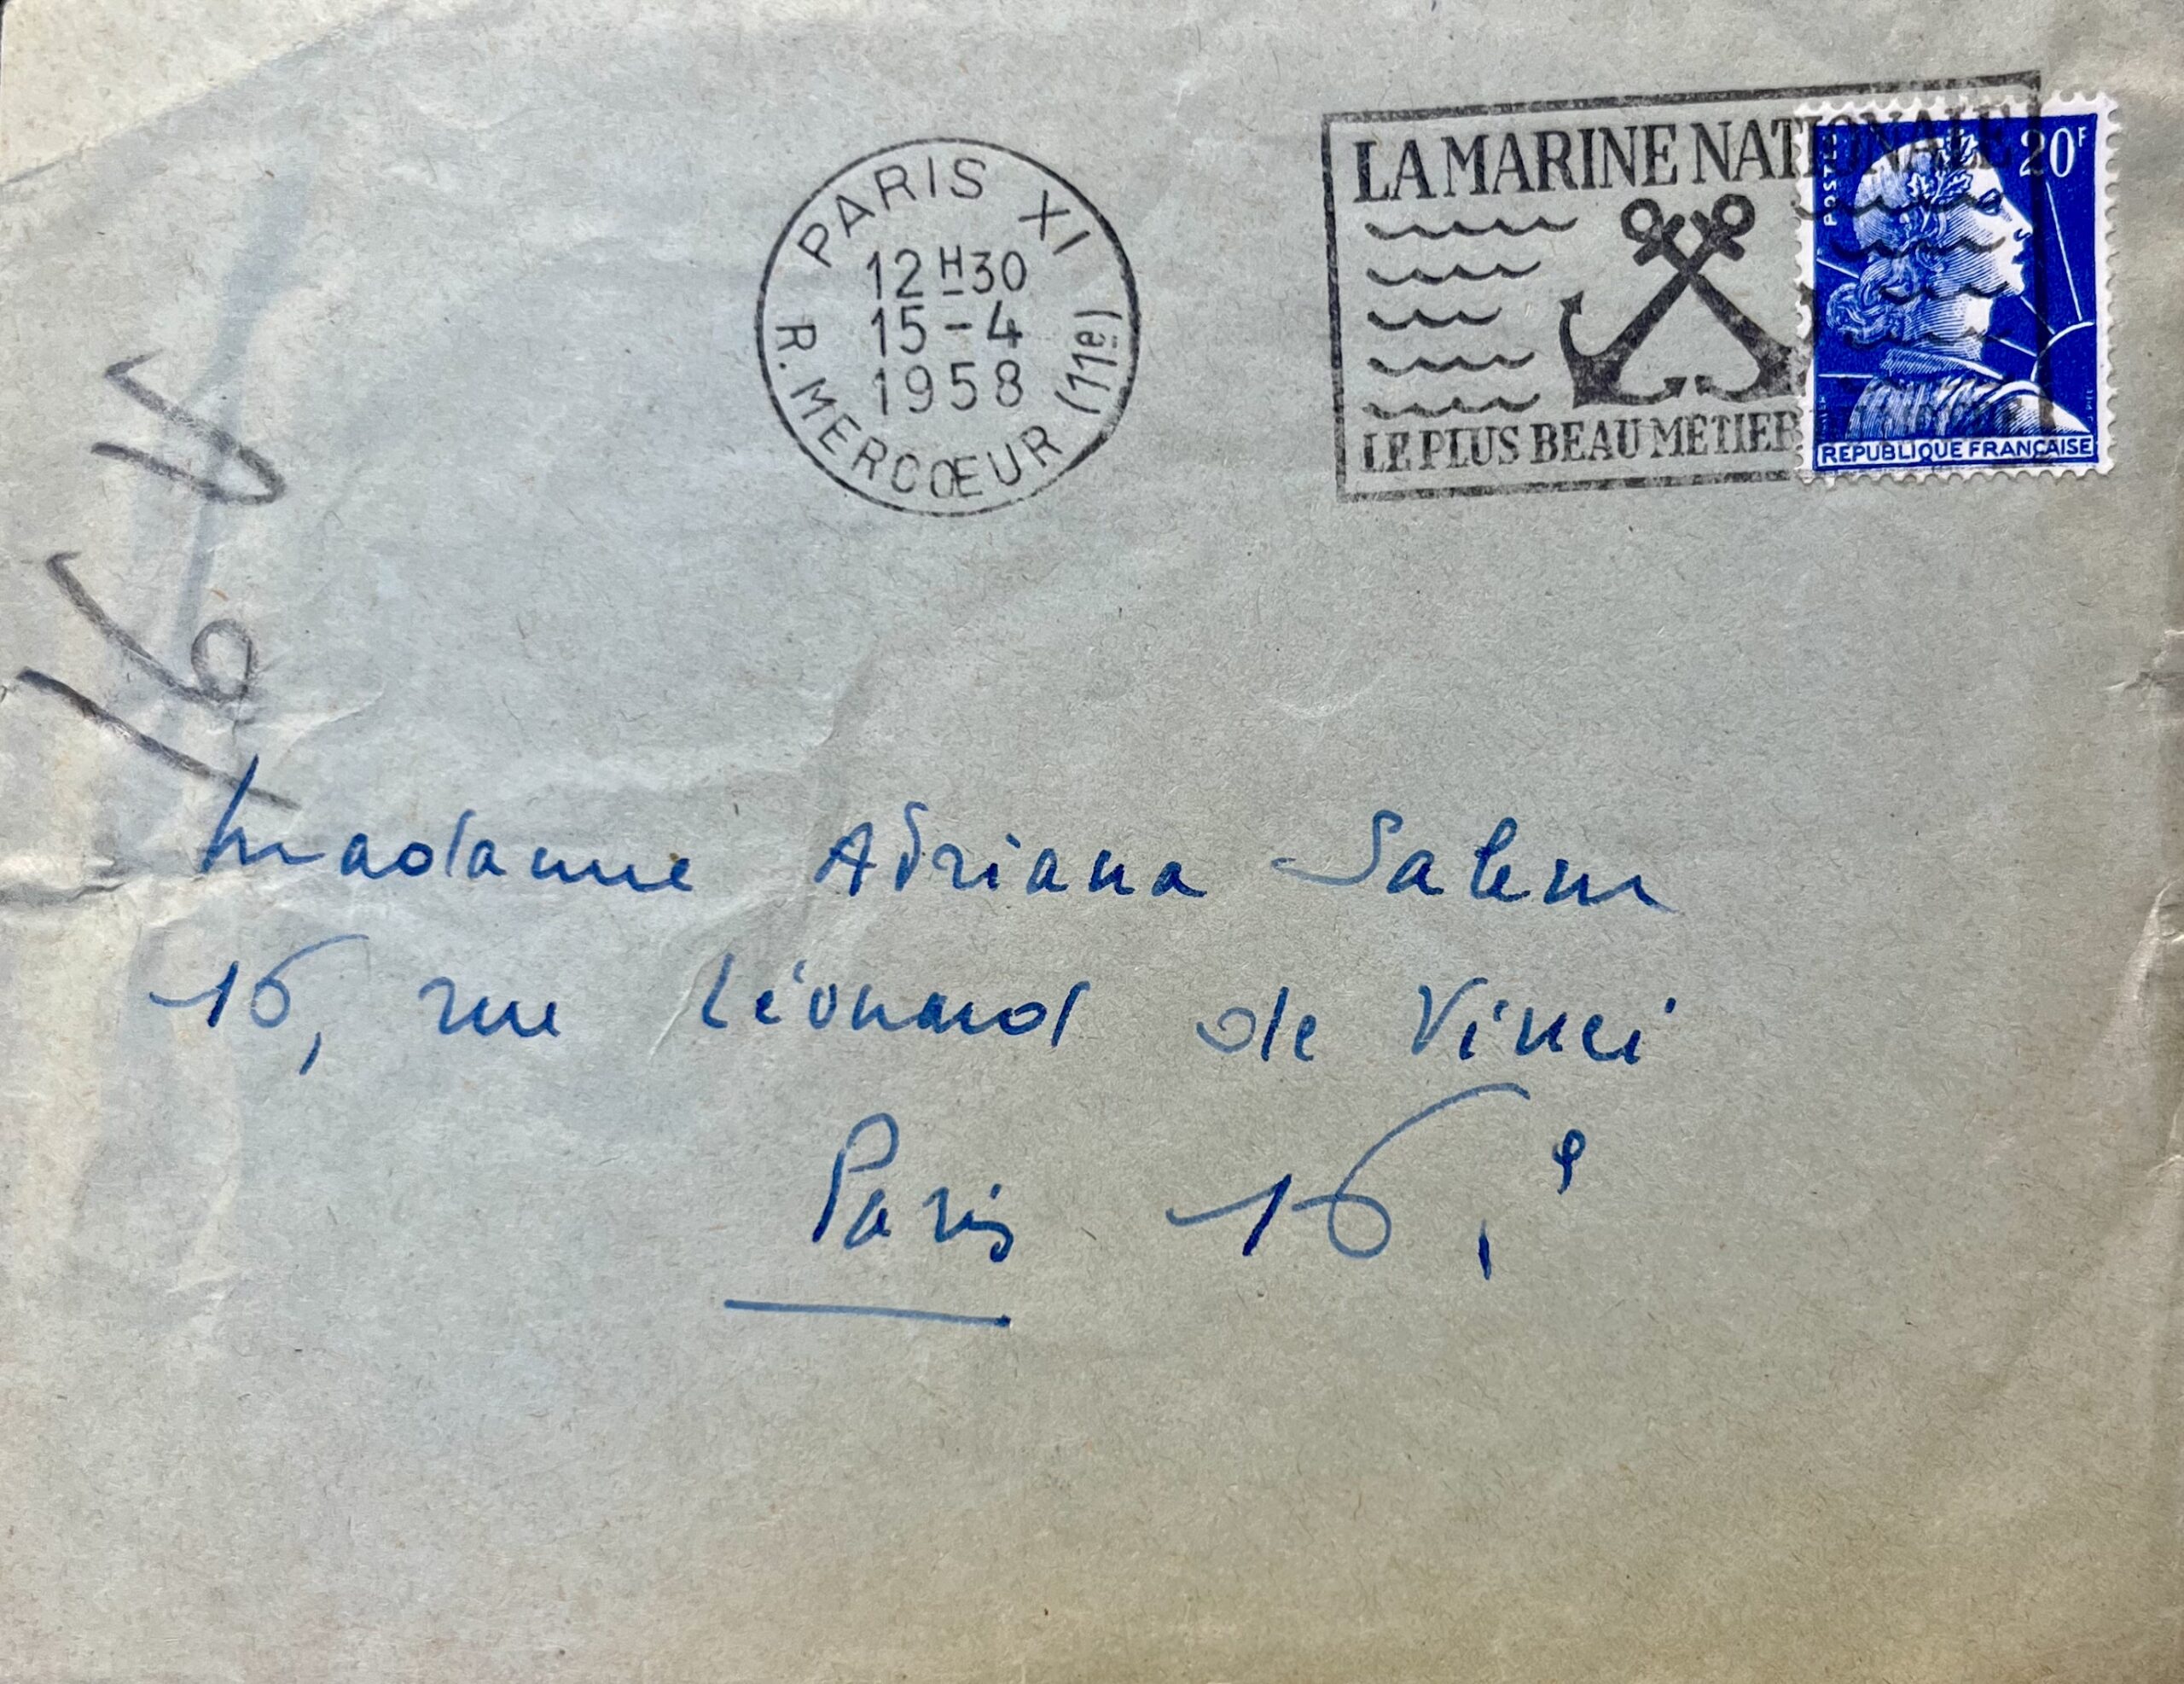 PARIS XI
12H30
15-4
1958
R. MERCŒUR (11e)
LA MARINE NATIONALE
LE PLUS BEAU METIER
POSTES
20F
REPUBLIQUE FRANÇAISE
16
Madame Adriana Salem
16, rue Léonard de Vinci
Paris 16, e